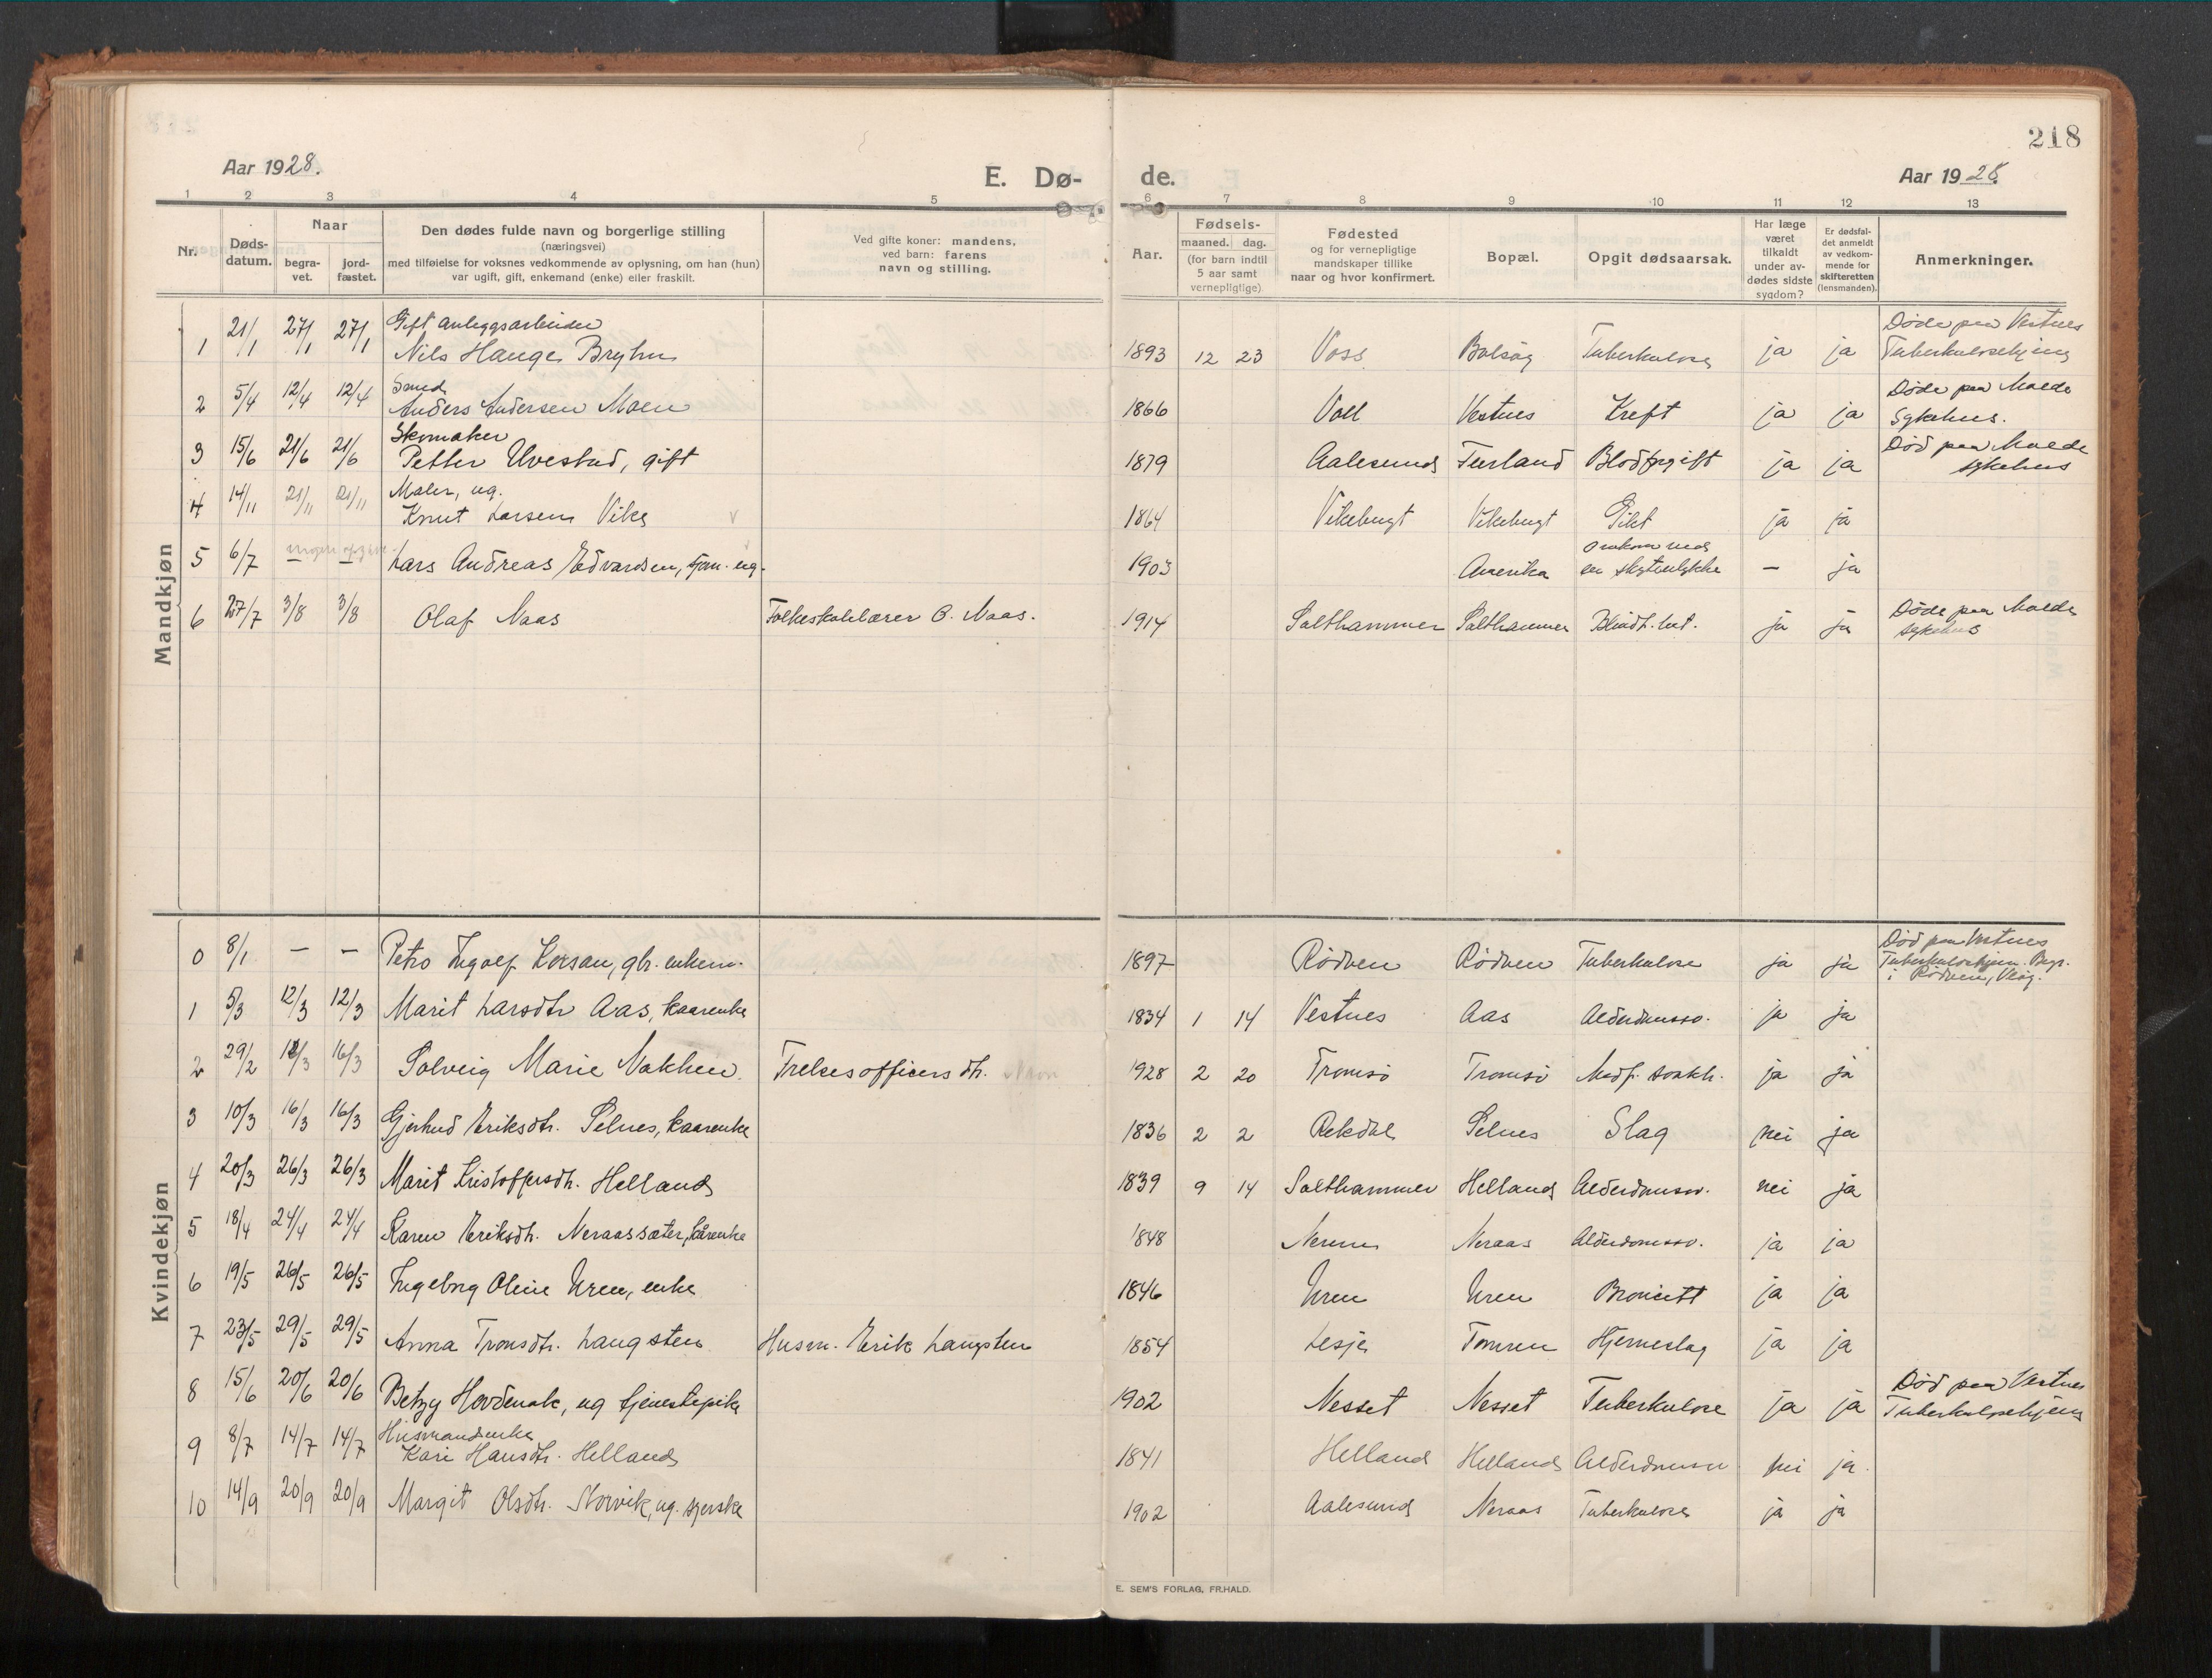 218
Aar 1928.
E. Dø-
de.
Aar 1928.
1 2 3 4 5 6 7 8 9 10 11 12 13
Nr.
Døds-
datum.
Naar
begra-
vet.
jord-
fæstet.
Den dødes fulde navn og borgerlige stilling
(næringsvei)
med tilføielse for voksnes vedkommende av oplysning, om han (hun)
var ugift, gift, enkemand (enke) eller fraskilt.
Ved gifte koner: mandens,
ved barn: farens
navn og stilling.
Aar.
Fødsels-
maaned. dag.
(for barn indtil
5 aar samt
vernepligtige)
Fødested
og for vernepligtige
mandskaper tillike
naar og hvor konfirmert.
Bopæl.
Opgit dødsaarsak.
Har læge
været
tilkaldt
under av-
dødes sidste
sygdom?
Er dødsfal-
det anmeldt
av vedkom-
mende for
skifteretten
(lensmanden).
Anmerkninger.
Mandkjøn
Gift anleggsarbeider
1 21/1 27/1 27/1 Nils Hauge Bryhn 1893 12 23 Voss Bolsøy Tuberkulose ja ja Døde paa Vestnes
Tuberkulosehjem
2 5/4 12/4 12/4 Anders Andersen Moen 1866 Voll Vestnes Kreft ja ja Døde paa Molde
Sykehus.
Skomaker
3 15/6 21/6 21/6 Petter Ulvestad, gift 1879 Aalesund Blodforgift ja ja Død paa Molde
sykehus
Maler, ug.
4 14/11 21/11 21/11 Knut Larsen Vike 1864 Vikebugt Vikebugt Gikt ja ja
5 6/7 Lars Andreas Edvardsen, ug. 1903 Amerika Omkom ved
en skyteulykke — ja
6 27/7 3/8 3/8 Olaf Naas Folkeskolelærer O. Naas. 1914 Salthammer Salthammer Blindt. bet. ja ja Døde paa Molde
sykehus
Kvindekjøn
0 8/1 — — Petro Ingolf gbr. enkem. 1897 Rødven Rødven Tuberkulose ja ja Død paa Vestnes
Tuberkulosehjem. Begr.
i Rødven, Veøy.
1 5/3 12/3 12/3 Marit Larsdtr Aas, kaarenke 1834 1 14 Vestnes Aas Alderdomssv. ja ja
2 29/2 16/3 Solveig Marie Nakken Frelsesofficers dtr. 1928 2 20 Tromsø Tromsø Medf. svakh. ja ja
3 10/3 16/3 16/3 Gjertrud Eriksdtr. Selnes, kaarenke 1836 2 2 Rekdal Selnes Slag nei ja
4 20/3 26/3 26/3 Marit Kristoffersdtr. Helland 1839 9 14 Salthammer Helland Alderdomssv. nei ja
5 18/4 24/4 24/4 Karen Eriksdtr. Neraassæter, kårenke 1848 Nerem Neraas Alderdomssv. ja ja
6 19/5 26/5 26/5 Ingeborg Oline Uren, enke 1846 Uren Uren Bronkitt ja ja
7 23/5 29/5 29/5 Anna Tronsdtr. Langsten Husm. Erik Langsten 1854 Lesje Tomren Hjerneslag ja ja
8 15/6 20/6 20/6 Betzy Hovdenak, ug tjenestepike 1902 Nesset Nesset Tuberkulose ja ja Død paa Vestnes
Tuberkulosehjem
Husmandsenke
9 8/7 14/7 14/7 Kari Hansdtr. Helland 1841 Helland Helland Alderdomssv nei ja.
10 14/9 20/9 20/9 Margit Olsdtr. Storvik, ug. syerske 1902 Aalesund Neraas Tuberkulose ja ja
E. SEM'S FORLAG, FR.HALD.